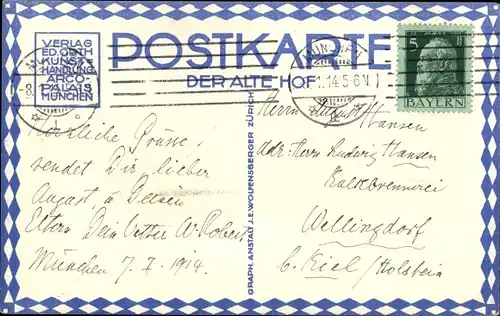 VERLAG
ED. GOHN
KUNST
HANDLUNG
ARCO-
PALAIS
MÜNCHEN
POSTKARTE
DER ALTE HOF
MÜNCHEN
8.
1.14 5-6 N
5
BAYERN
Herzliche Grüsse,
sendet Dir, lieber
August, u Deinen
Eltern Dein Vetter W. Robert
München 7. I. 1914.
GRAPH. ANSTALT J.E. WOLFENSBERGER ZÜRICH
Herrn August Hansen
adr: Herrn Ludwig Hansen
Kalkbrennerei
Wellingdorf
b. Kiel / Holstein